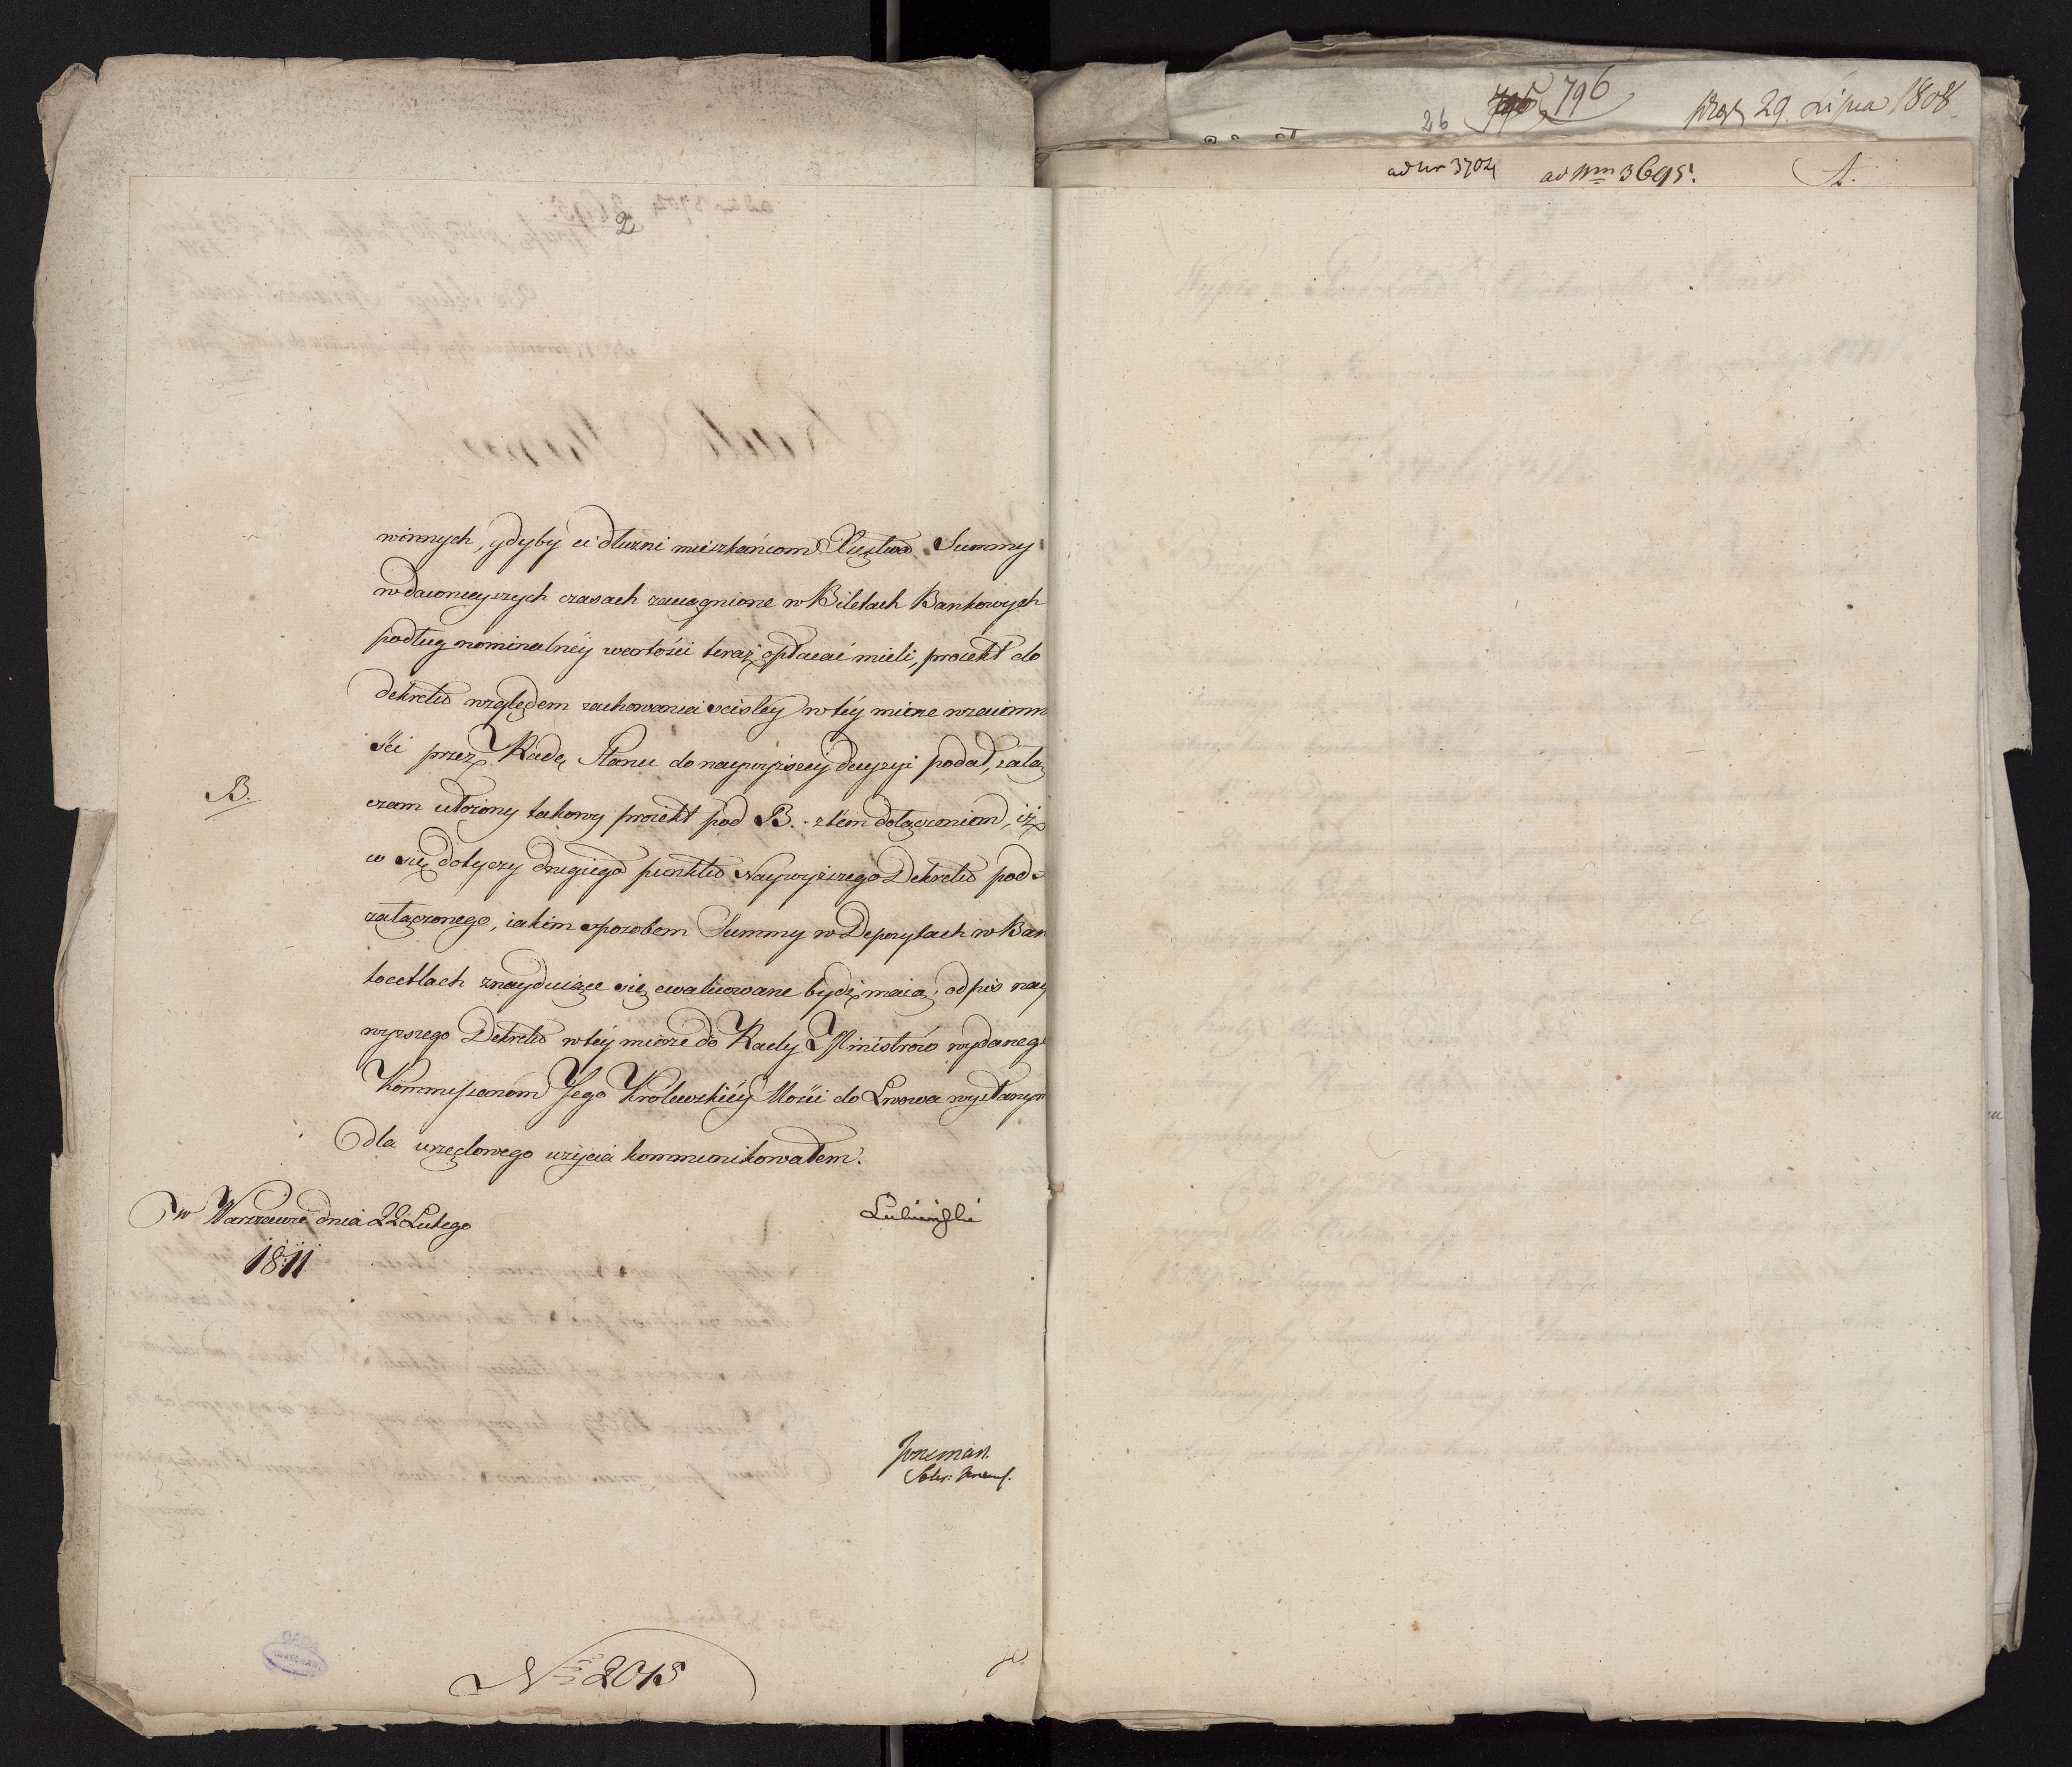 2
winnych, gdyby ci dłużni mieszkańcom Xięstwa Summy
w dawnieyszych czasach zaciągnione w Biletach Bankowych
podług nominalnéy wartości teraz opłacać mieli, proiekt do
dekretu względem zachowania scisłéy w téy mierze wzaiemno
ści przez Radę Stanu do naywyższéy decyzyi podał, załą
czam ułożony takowy proiekt pod B. z tém dołączeniem, iż
co się dotyczy drugiego punktu Naywyższego Dekretu pod
załączonego, iakim sposobem Summy w Depozytach w Ban
kocetlach znayduiące się ewaluowane bydź maią; odpis nay
wyższego Dekretu w téy mierze do Rady Ministrów wydanego
Kommissarzom Jego Królewskiéy Mości do Lwowa wysłanym
dla urzędowego użycia kommunikowałem.
B.
w Warszawie dnia 22 Lutego
1811
Łubieński
No 2015
26 796 29. Lipca 1808.
ad nr 3704 ad Num 3695. A.